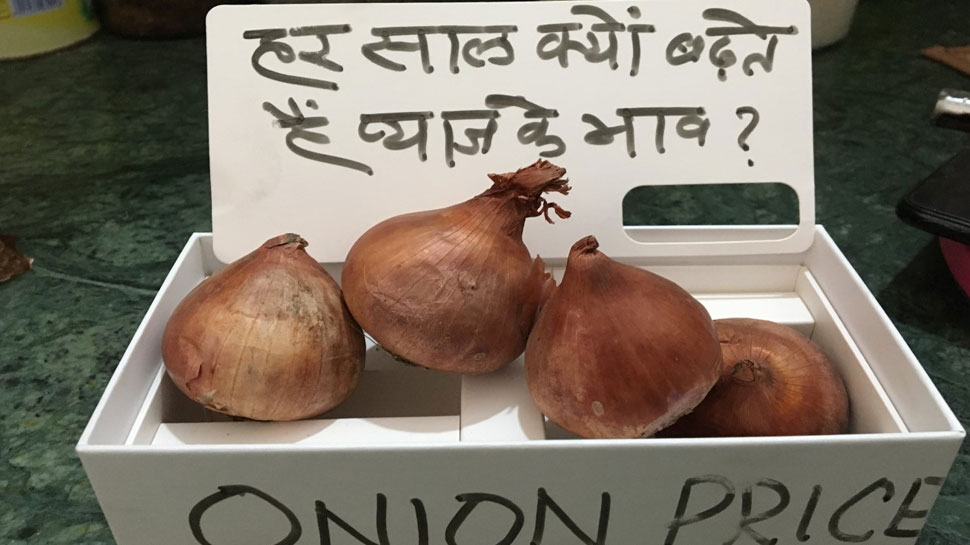 हर साल क्यों बढ़ते
हैं प्याज के भाव ?
ONION PRICE